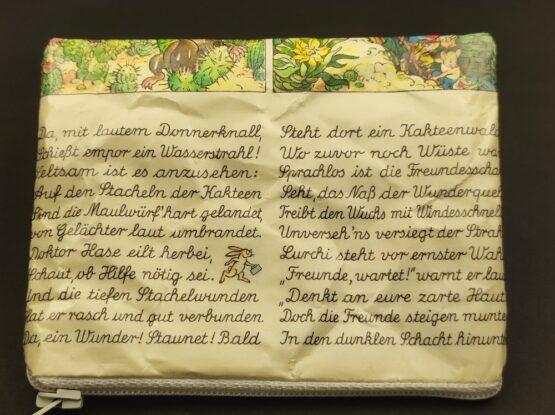 Da, mit lautem Donnerknall,
Schießt empor ein Wasserstrahl!
Seltsam ist es anzusehen:
Auf den Stacheln der Kakteen
Sind die Maulwürf' hart gelandet,
von Gelächter laut umbrandet.
Doktor Hase eilt herbei,
Schaut, ob Hilfe nötig sei.
Und die tiefen Stachelwunden
Hat er rasch und gut verbunden.
Da, ein Wunder! Staunet! Bald
Steht dort ein Kakteenwald
Wo zuvor noch Wüste war
Sprachlos ist die Freundesschar
Seht, das Naß der Wunderquell
Treibt den Wuchs mit Windesschnell
Unverseh'ns versiegt der Strahl
Lurchi steht vor ernster Wahl
„Freunde, wartet!" warnt er lau
„Denkt an eure zarte Haut
Doch die Freunde steigen munte
In den dunklen Schacht hinunt